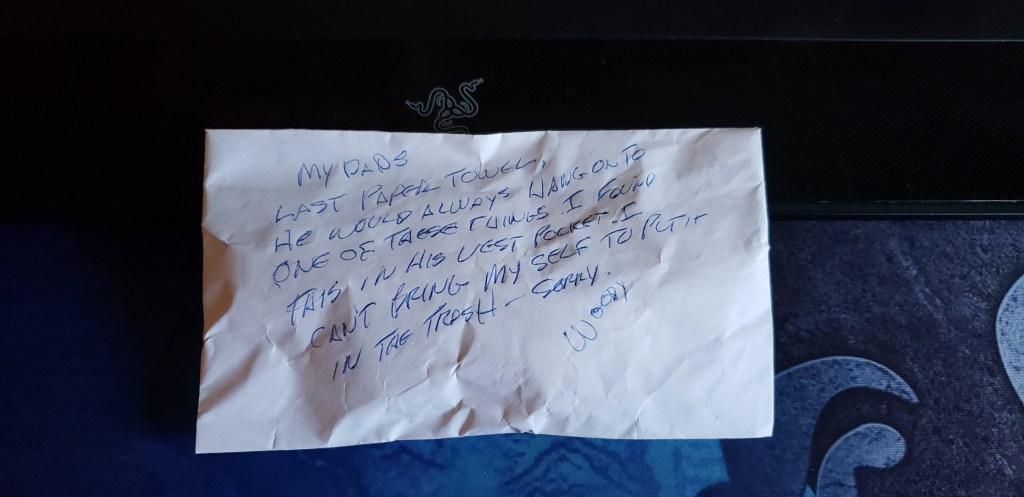 MY DADS
LAST PAPER TOWEL.
HE WOULD ALWAYS HANG ON TO
ONE OF THESE THINGS. I FOUND
THIS IN HIS VEST POCKET I
CANT BRING MY SELF TO PUT IT
IN THE TRASH - SORRY.
WOODY